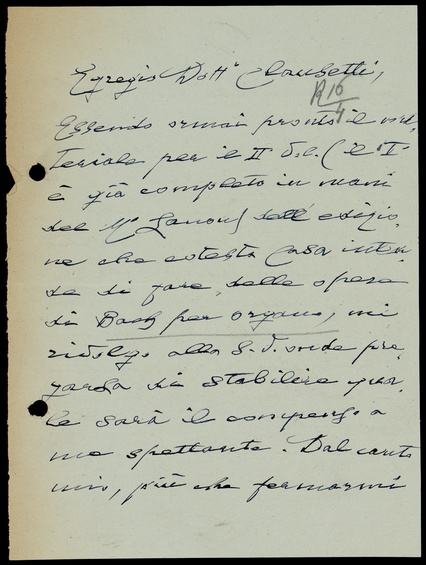 Egregio Dott. Clausetti,
R 16/4
Essendo ormai pronto il ma-
teriale per il II vol. (il I
è già completo in mani
del M° Zanon) dell'edizio-
ne che codesta Casa inten-
de di fare delle opere
di Bach per organo, mi
rivolgo alla S.V. onde pre-
garla di stabilire qua-
le sarà il compenso a
me spettante. Dal canto
mio, più che fermarmi